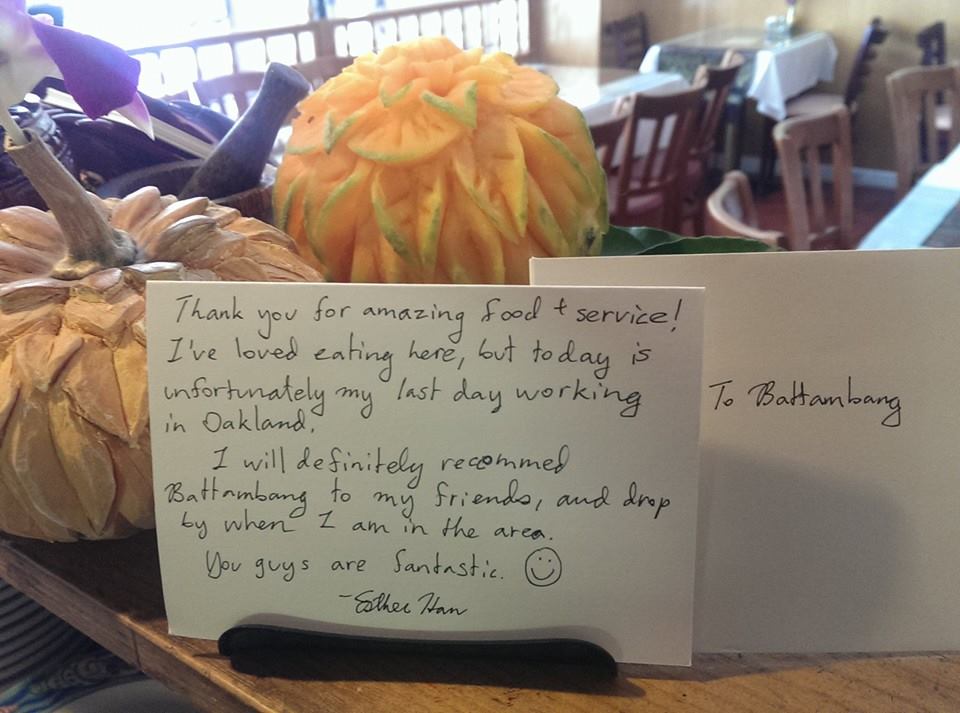 Thank you for amazing food + service!
I've loved eating here, but today is
unfortunately my last day working
in Oakland.
I will definitely recommed
Battambang to my friends, and drop
by when I am in the area.
You guys are fantastic. ☺
-Esther Han
To Battambang